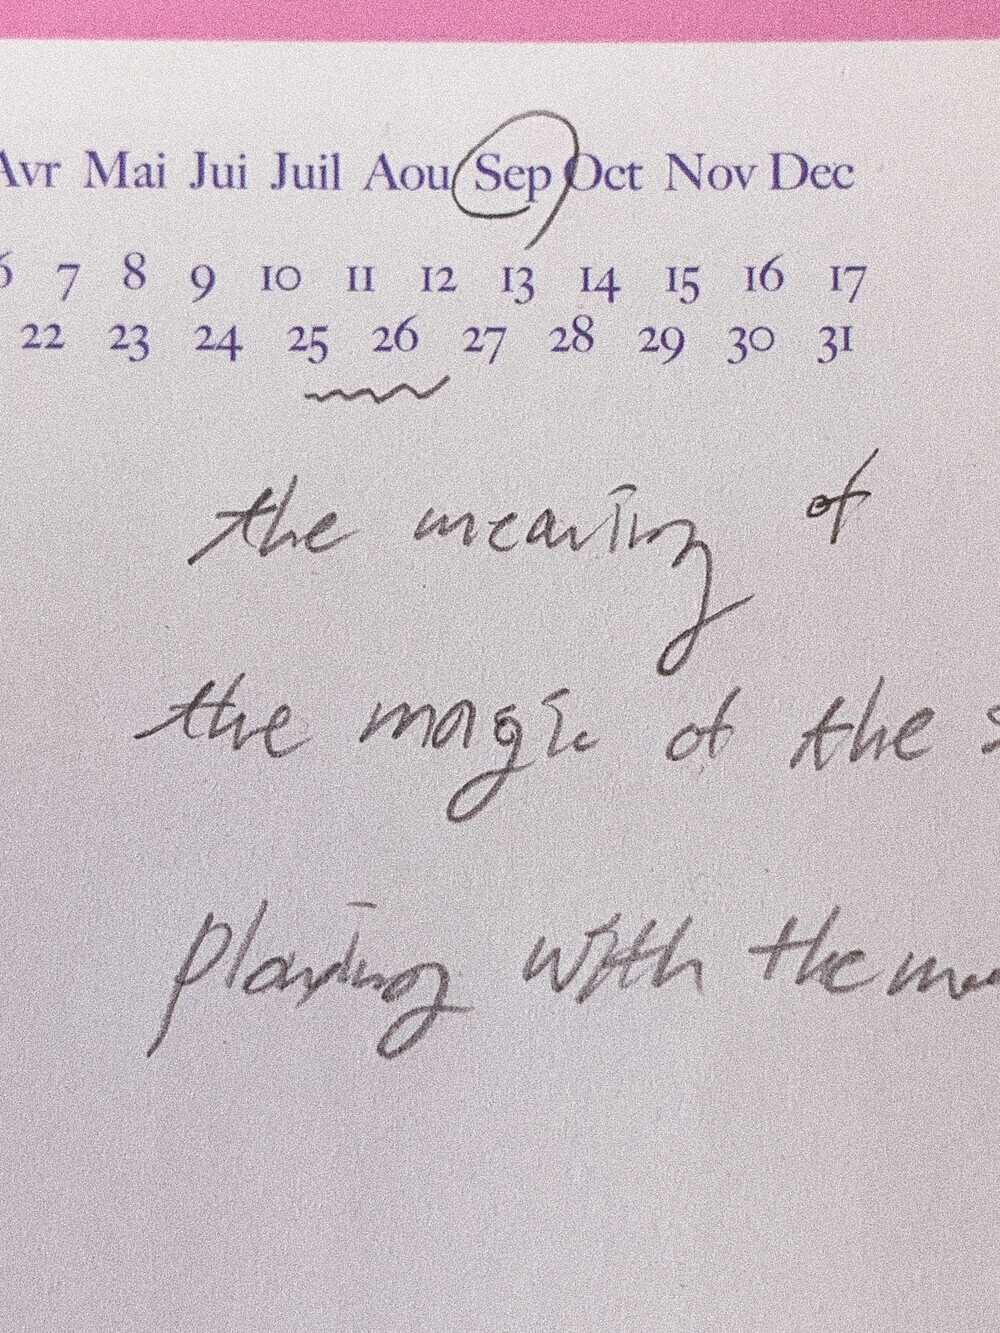 Avr Mai Jui Juil Aou Sep Oct Nov Dec
6 7 8 9 10 11 12 13 14 15 16 17
22 23 24 25 26 27 28 29 30 31
the meaning of
the magic of the
playing with the